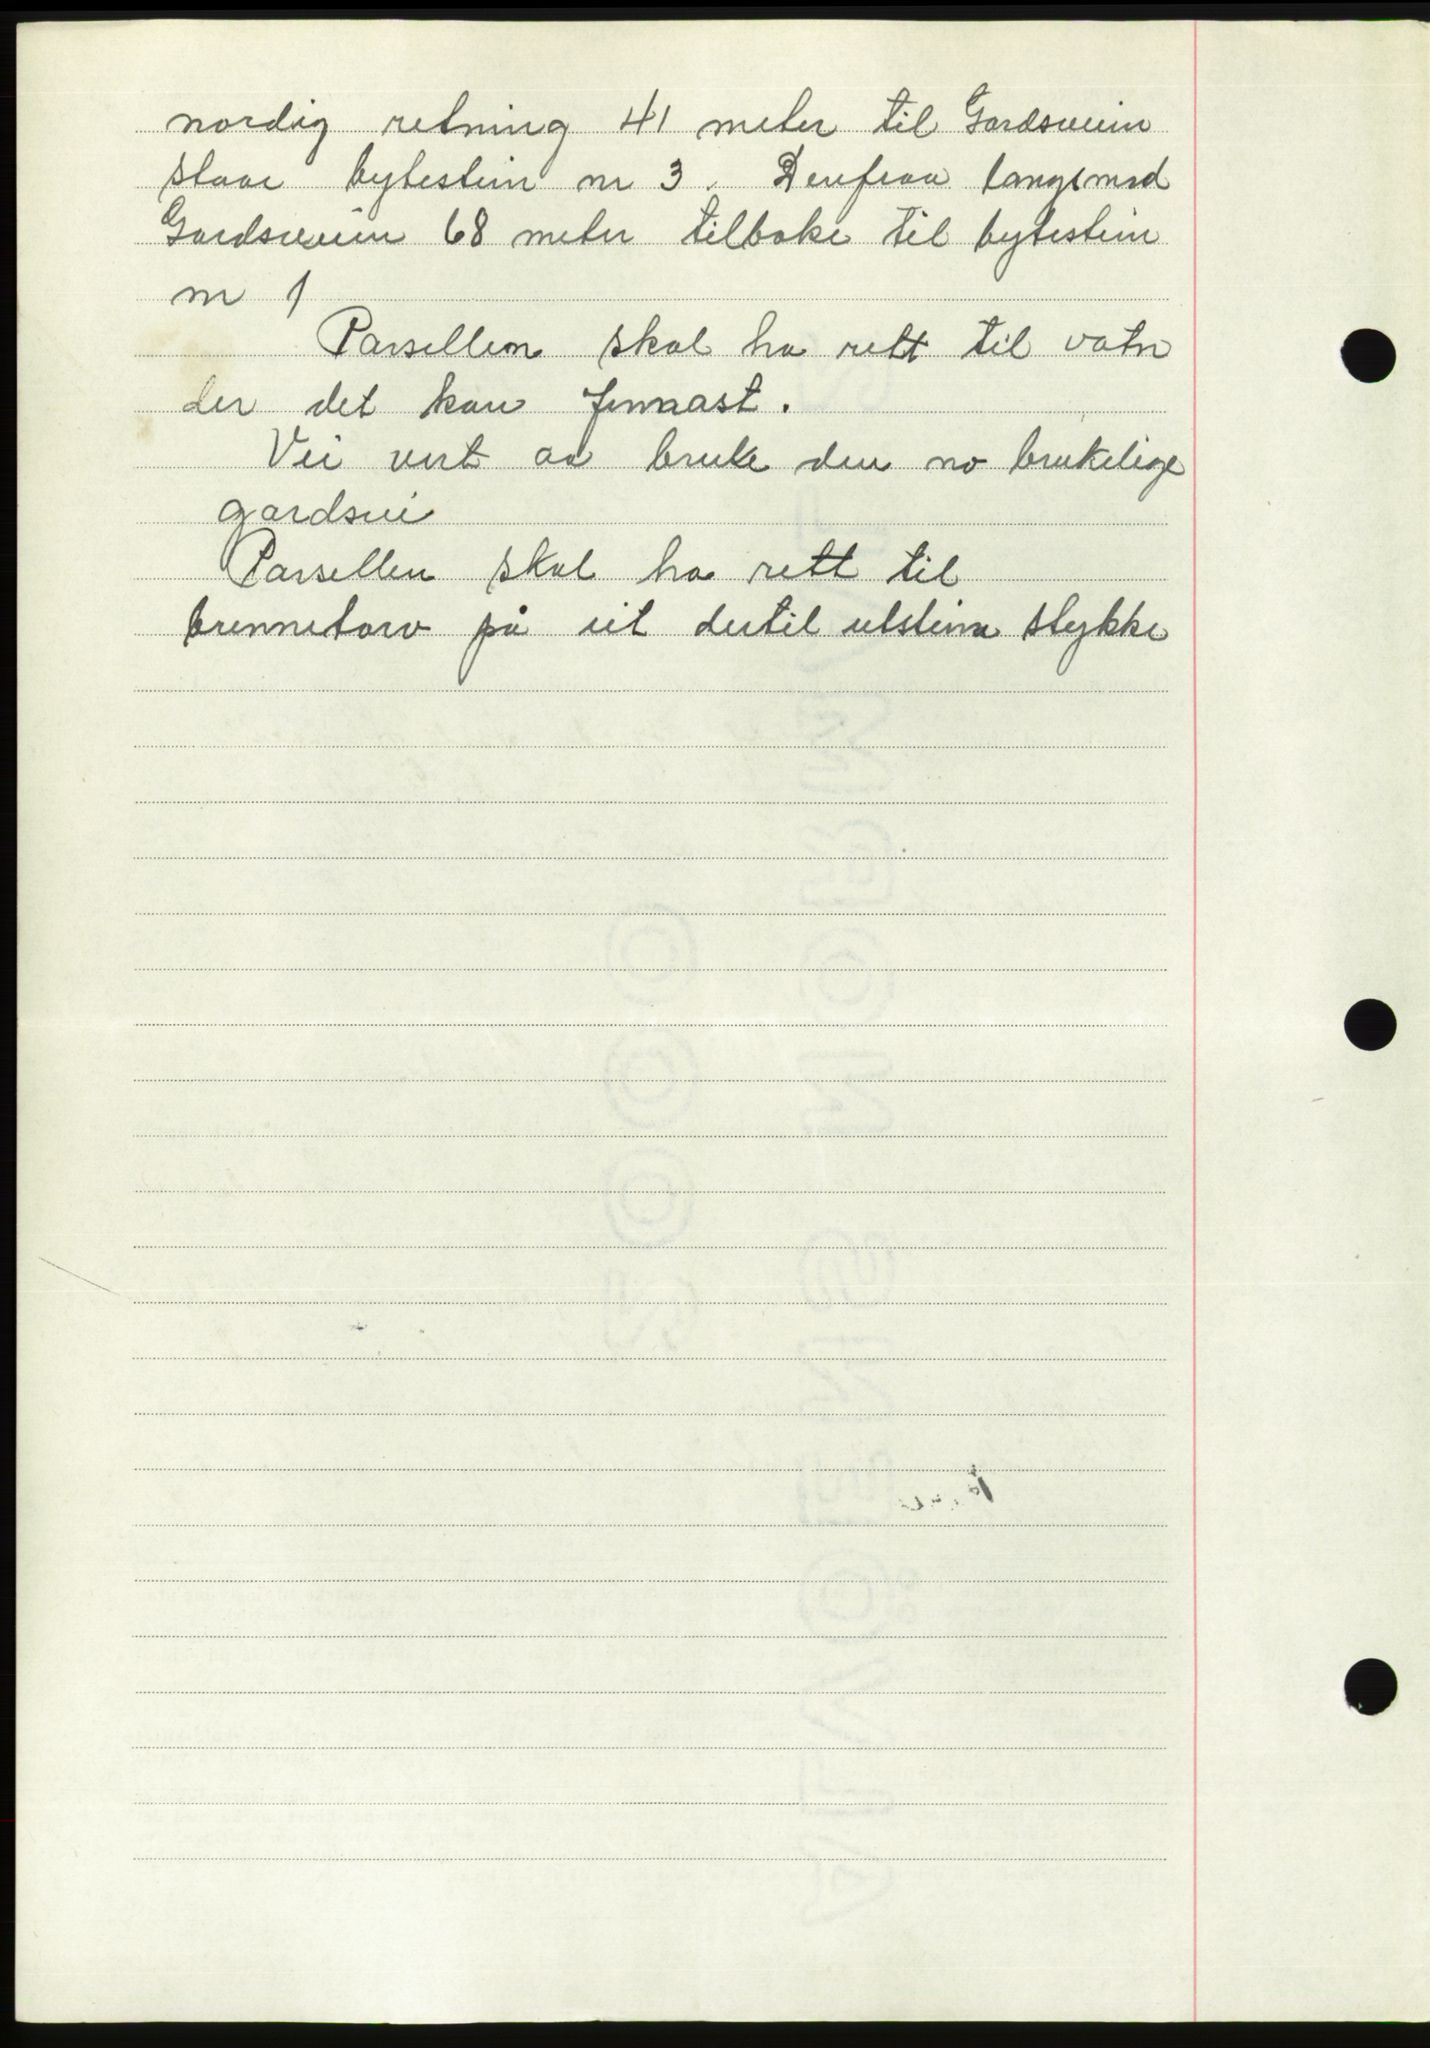 nordig retning 41 meter til Gardsveien
staar bytestein nr 3. Derifraa langsmed
Gardsveien 68 meter tilbake til bytestein
nr 1
Parsellen skal ha rett til vatn
der det kan finnast.
Vei vert aa bruke den no brukelige
gardsvei
Parsellen skal ha rett til
brennetorv på eit dertil utstina stykke